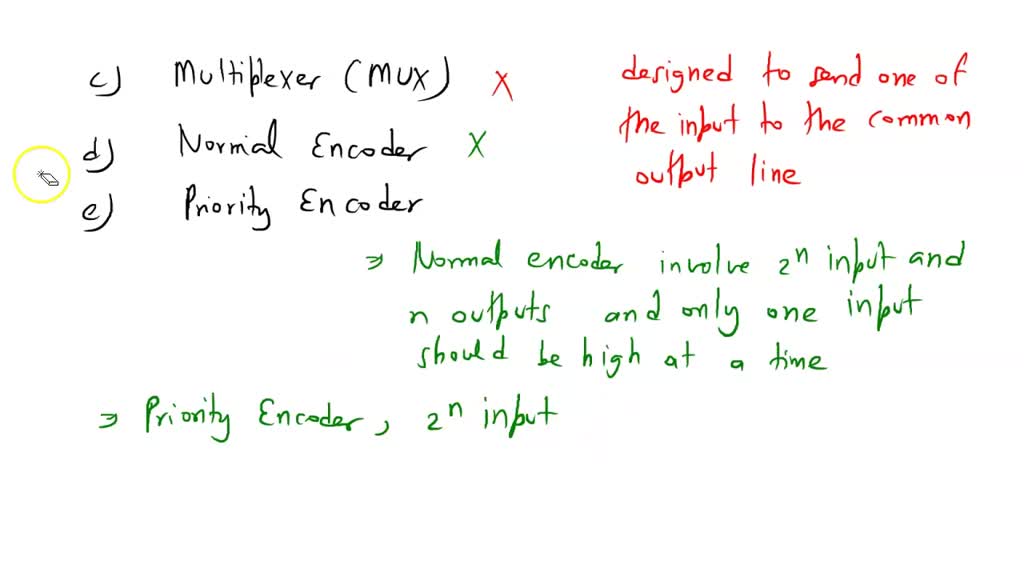 c) Multiplexer (MUX) X
d) Normal Encoder X
e) Priority Encoder
designed to send one of
the input to the common
output line
⇒ Normal encoder involve 2ⁿ input and
n outputs and only one input
should be high at a time
⇒ Priority Encoder, 2ⁿ input